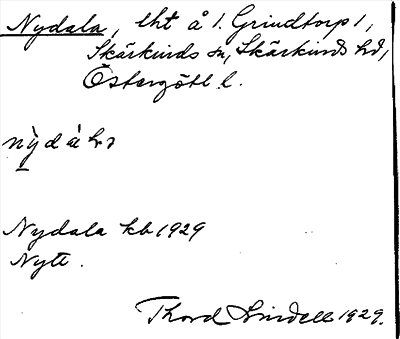 Nydala, lht å 1. Grindtorp 1,
Skärkinds sn, Skärkinds hd,
Östergötl. l.
Nydala kb 1929
Nytt.
Thord Lindell 1929.